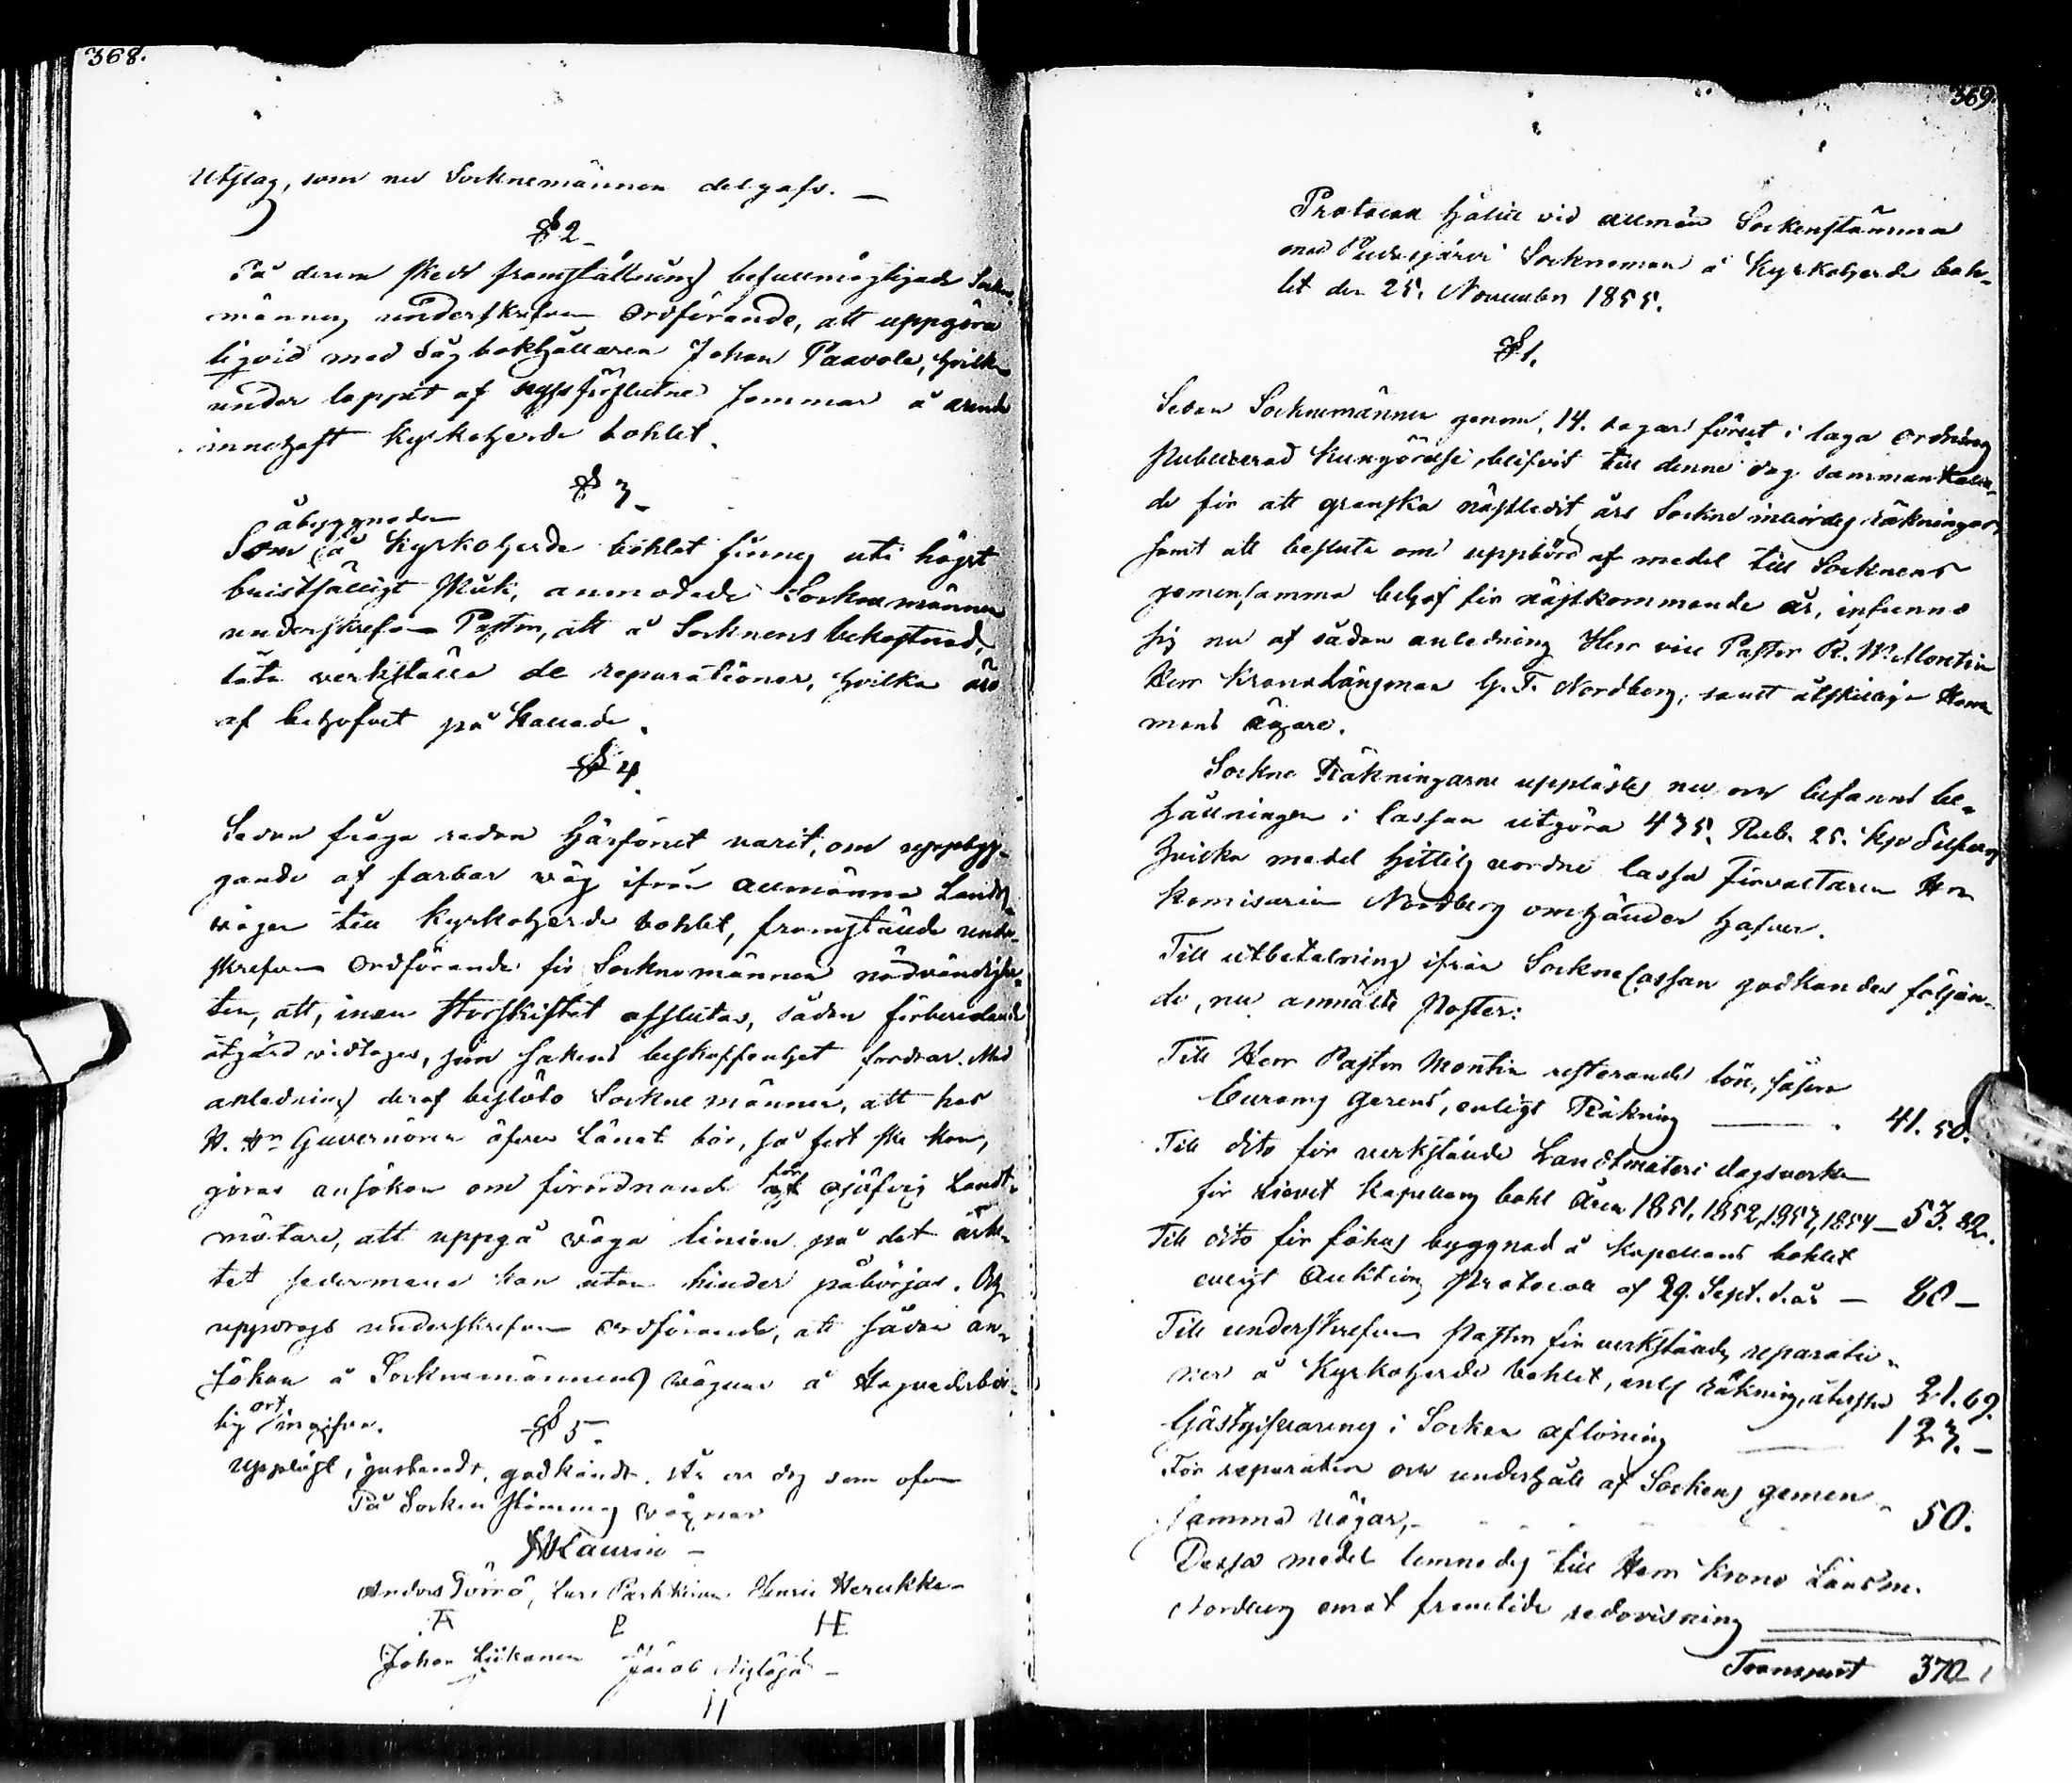 368.
Utslag, som nu Socknemännen delgafs. —
§ 2.
På derom skedd framställning befullmägtigade Sockne-
männen underskrefven Ordförande, att uppgöra
liqvid med Sågbokhållaren Johan Paavola, hvilken
under loppet af nyssförflutne sommar å arende
innehaft Kyrkoherde bohlet.
§ 3.
åbyggnaden
Som å Kyrkoherde bohlet finnes uti högst
bristfälligt skick, anmodade Socknemännen
underskrefven Pastor, att å Socknens bekostnad,
låta verkställa de reparationer, hvilka äro
af behofvet påkallade.
§ 4.
Sedan fråga redan härförut varit, om uppbyg-
gande af farbar väg ifrån allmänna Lands
vägen till Kyrkoherde bohlet, framstälde under-
skrefven Ordförande för Socknemännen nödvändighe-
ten, att, innan Storskiftet afslutas, sådan förberedande
åtgärd vidtages, som sakens beskaffenhet fordrar. Med
anledning deraf beslöto Socknemännen, att hos
H. Hr Guvernören öfver Länet bör, så fort ske kan,
göras ansökan om förordnande för ojäfvig Landt-
mätare, att uppgå väga linien på det arbe-
tet sedermera kan utan hinder påbörjas. Och
uppdrogs underskrefven Ordförande, att sådan an-
sökan å Socknemännens vägnar å Högvederbör-
lig ort ingifva.
§ 5.
Uppläst, justeradt, godkändt. År och dag som ofvan
På Socken stämmans vägnar
Laurin —
Anders Törrö, Lars Parkkinen Henric Herukka
A P HE
Johan Liikanen Jacob
11
369.
Protocoll hållit vid allmän Sockenstämma
med Pudasjärvi Socknemän å Kyrkoherde boh-
let den 25. November 1855.
§ 1.
Sedan Socknemännen genom, 14. dagar förut i laga Ordning
Publicerad Kungörelse, blifvit till denne dag sammankalla-
de för att granska nästledit års Sockne inbördes räkningar,
samt att besluta om uppbörd af medel till Socknens
gemensamma behof för nästkommande år, infunno
sig nu af sådan anledning Herr vice Pastor R. W. Montin
Herr Kronolänsman G. F. Nordberg, samt åtskillige Hem-
mans ägare.
Sockne Räkningarne upplästes nu och befanns be-
hållningen i Cassan utgöra 475. Rub. 25. Kop Silfver
hvilka medel hittils vordne Cassa Förvaltaren Herr
Komisarien Nordberg omhänder hafver.
Till utbetalning ifrån SockneCassan godkändes följan-
de, nu anmälte Poster:
Till Herr Pastor Montin resterande lön, såsom
Curam gerens, enligt Räkning — 41. 50.
Till dito för verkstälde Landtmäteri dagsverken
för Kapellans bohl Åren 1851, 1852, 1853, 1854 — 53. 82.
Till dito för fähus byggnad å Kapellans bohlet
enligt Auktions Protocoll af 29. Sept. d. år — 80 —
Till underskrefven Pastor för verkstälde reparatio-
ner å Kyrkoherde bohlet, enl räkning, 21. 69.
Gästgifvarens i Socken aflöning — 123. —
För reparation och underhåll af Sockens gemen-
samma vägar, - - - - 50.
Dessa medel lemnades till Herr Krono Länsm.
Nordberg emot framtida redovisning
Transport 370